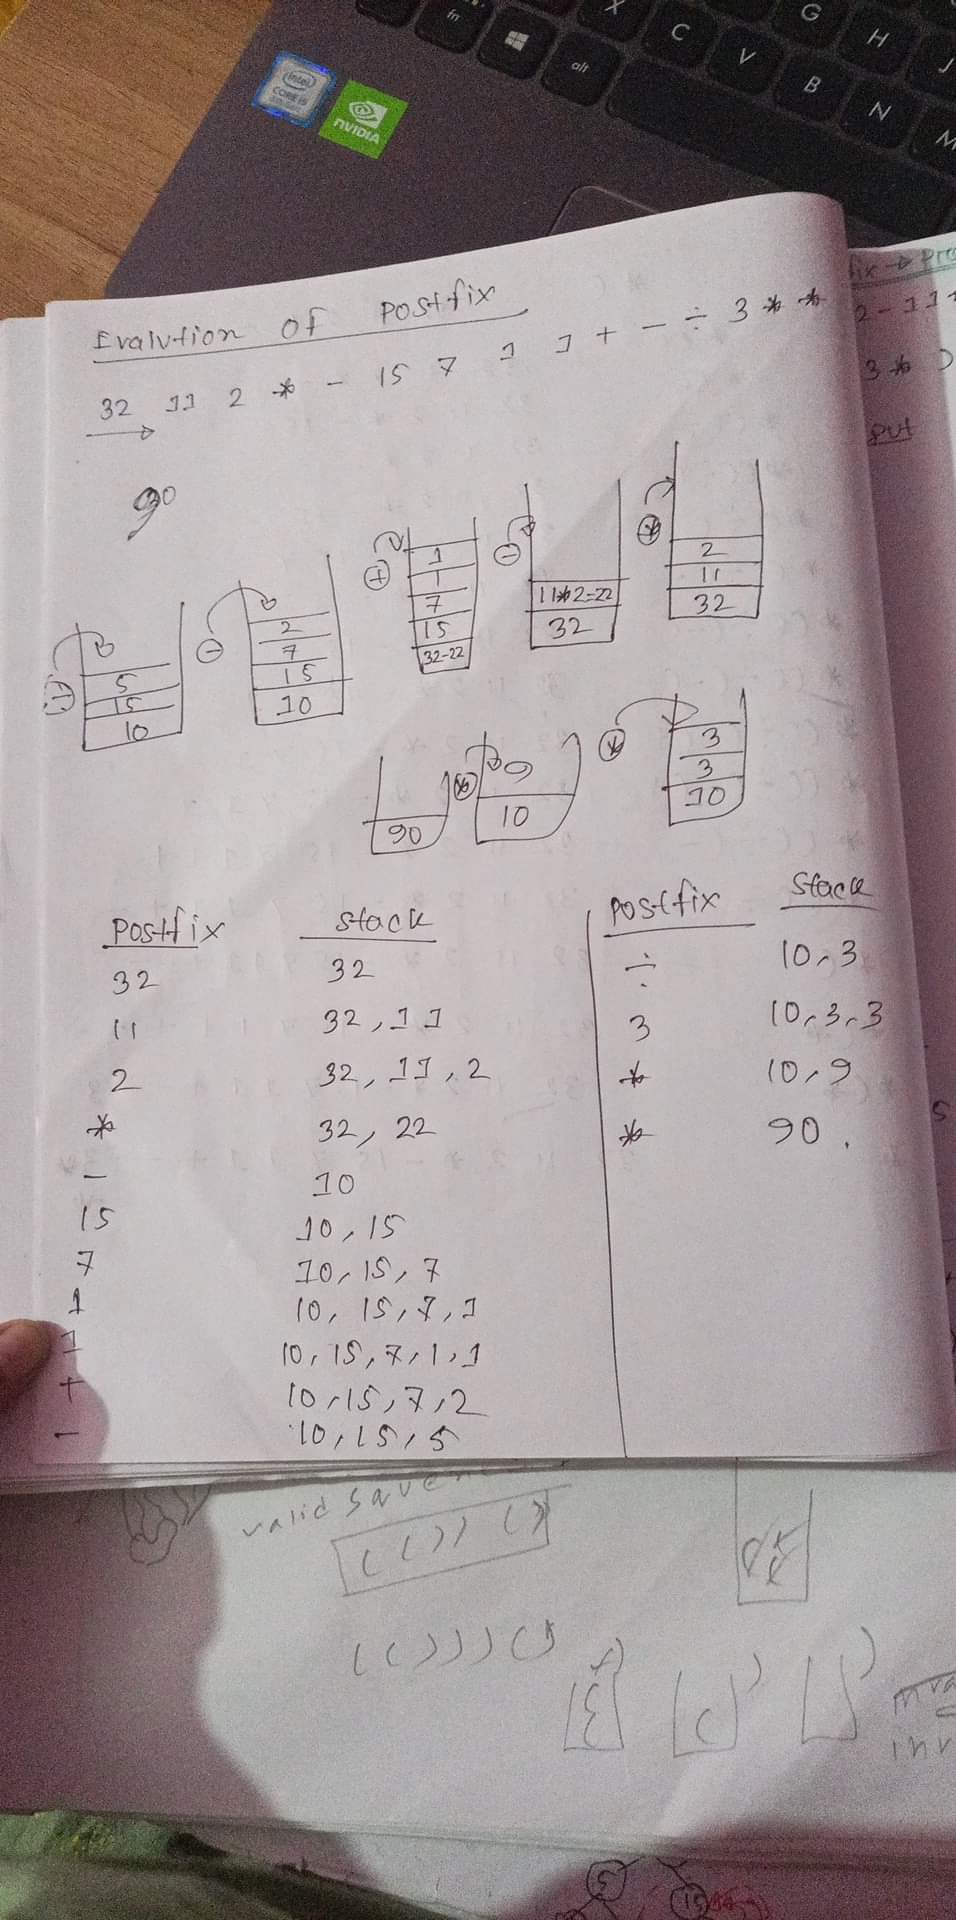 fn
alt
X
C
V
G
B
H
N
J
M
intel
CORE i5
NVIDIA
Evalution of postfix
32 11 2 * - 15 7 1 1 + - ÷ 3 * *
90
+
1
1
7
15
32-22
-
11*2=22
32
*
2
11
32
÷
5
15
10
-
2
7
15
10
90
*
9
10
*
3
3
10
Postfix Stack
32 32
11 32, 11
2 32, 11, 2
* 32, 22
- 10
15 10, 15
7 10, 15, 7
1 10, 15, 7, 1
1 10, 15, 7, 1, 1
+ 10, 15, 7, 2
- 10, 15, 5
Postfix Stack
÷ 10, 3
3 10, 3, 3
* 10, 9
* 90.
2 - 11
3 * )
put
valid
( ( ) ) ( )
( ( ) ) ) ( )
5
15